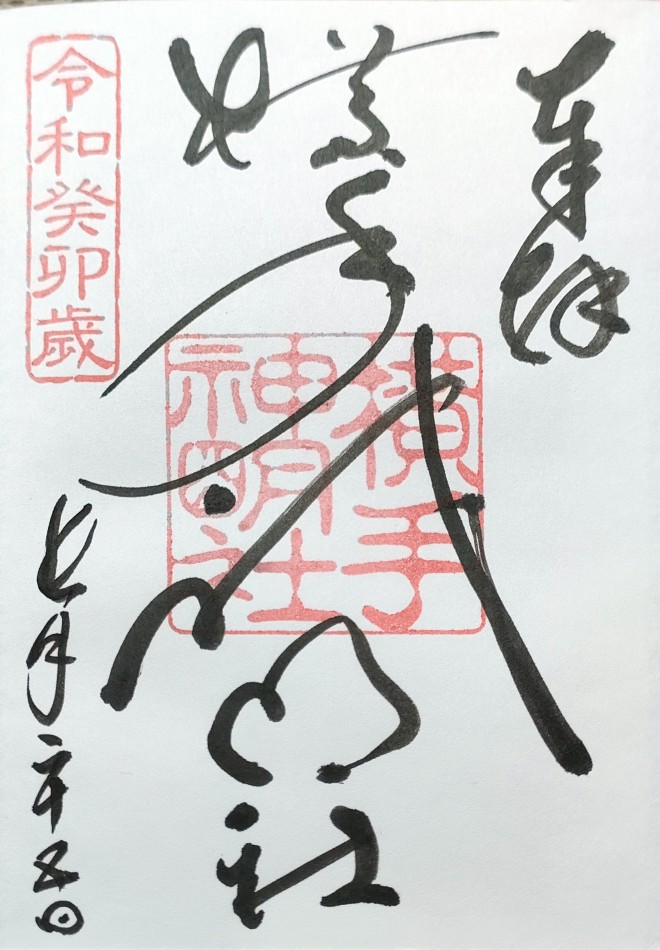 奉拝
横手神明社
横手
神明社
令和癸卯歳
七月二十五日